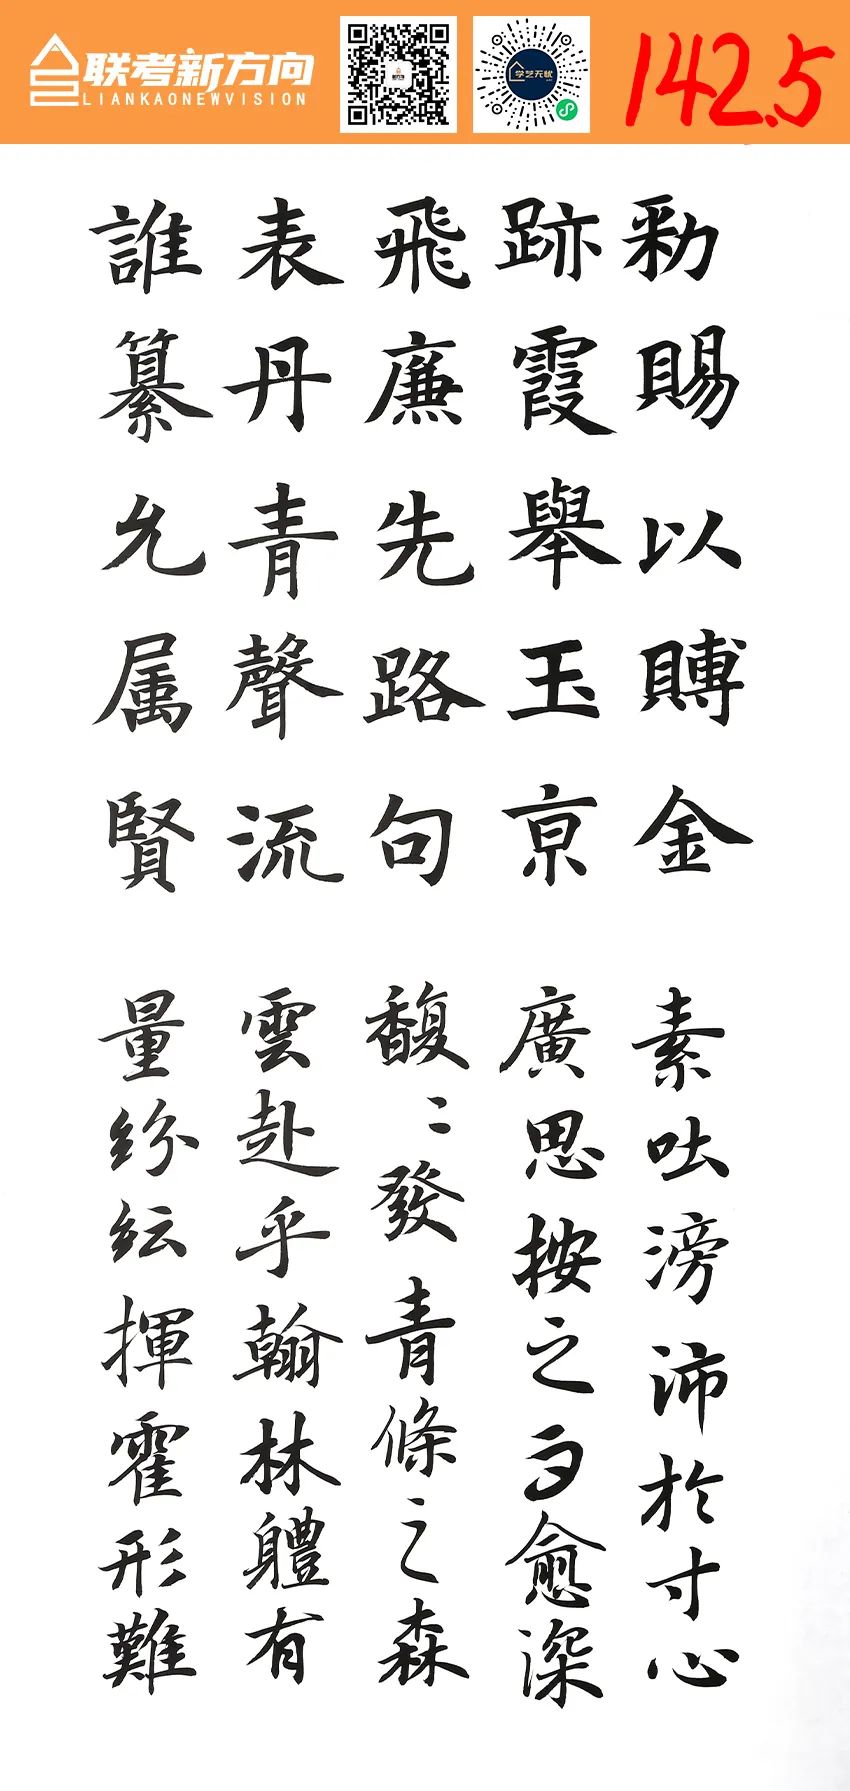 联考新方向
LIANKAONEWVISION
学艺无忧
142.5
勑賜以賻金
跡霞舉玉亰
飛廉先路句
表丹青聲流
誰纂允属賢
素吐滂沛於寸心
廣思按之而愈深
馥〻發青條之森
雲赴乎翰林軆有
量紛紜揮霍形難